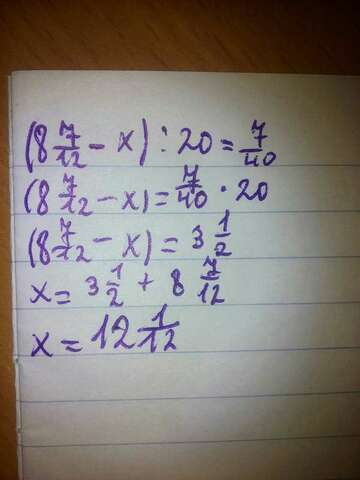 (8 7/12 - x) : 20 = 7/40
(8 7/12 - x) = 7/40 · 20
(8 7/12 - x) = 3 1/2
x = 3 1/2 + 8 7/12
x = 12 1/12